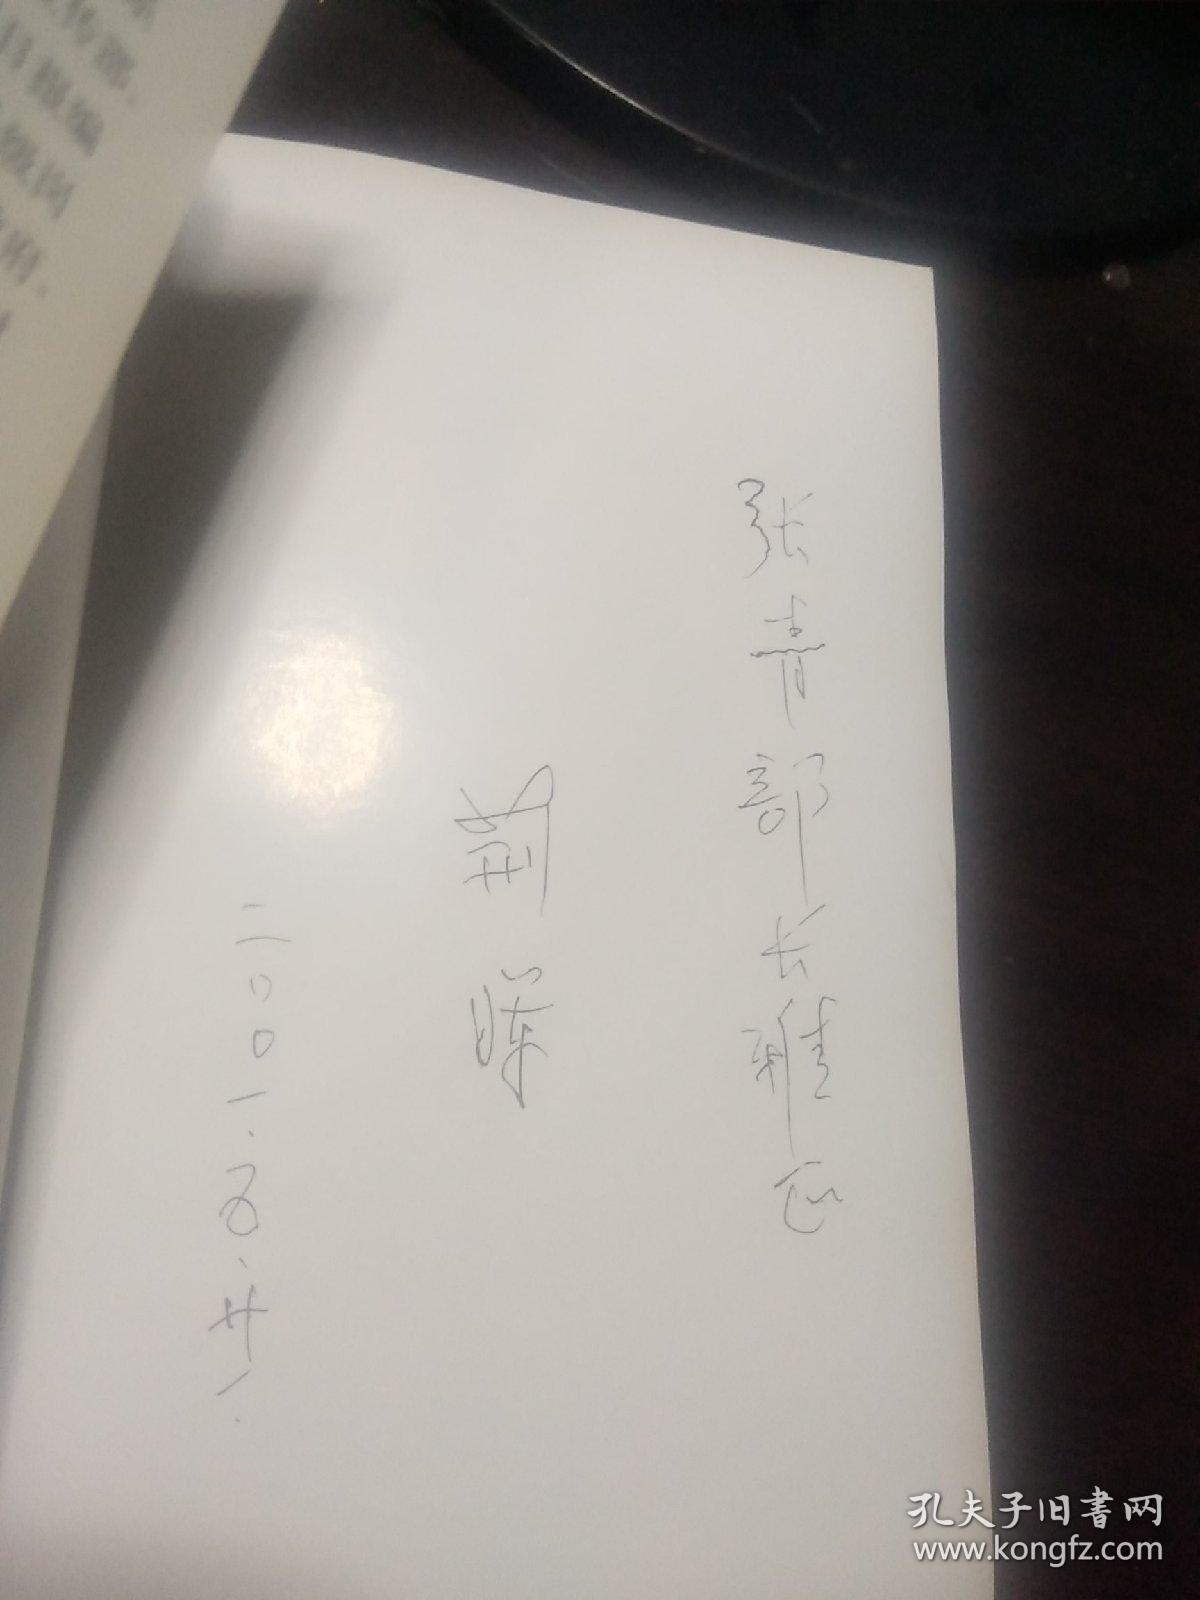 张青部长雅正
荆晖
二〇〇一.五.廿一.
孔夫子旧书网
www.kongfz.com